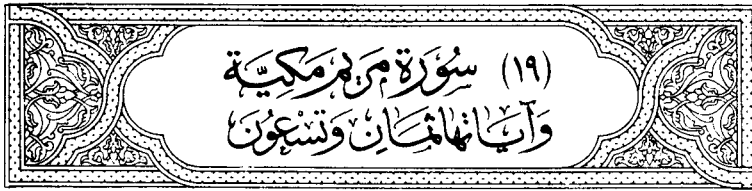 (١٩) سُورَة مَريَم مَكيَّة
وَآيَاتهَا ثمَانٍ وَتسْعُونَ